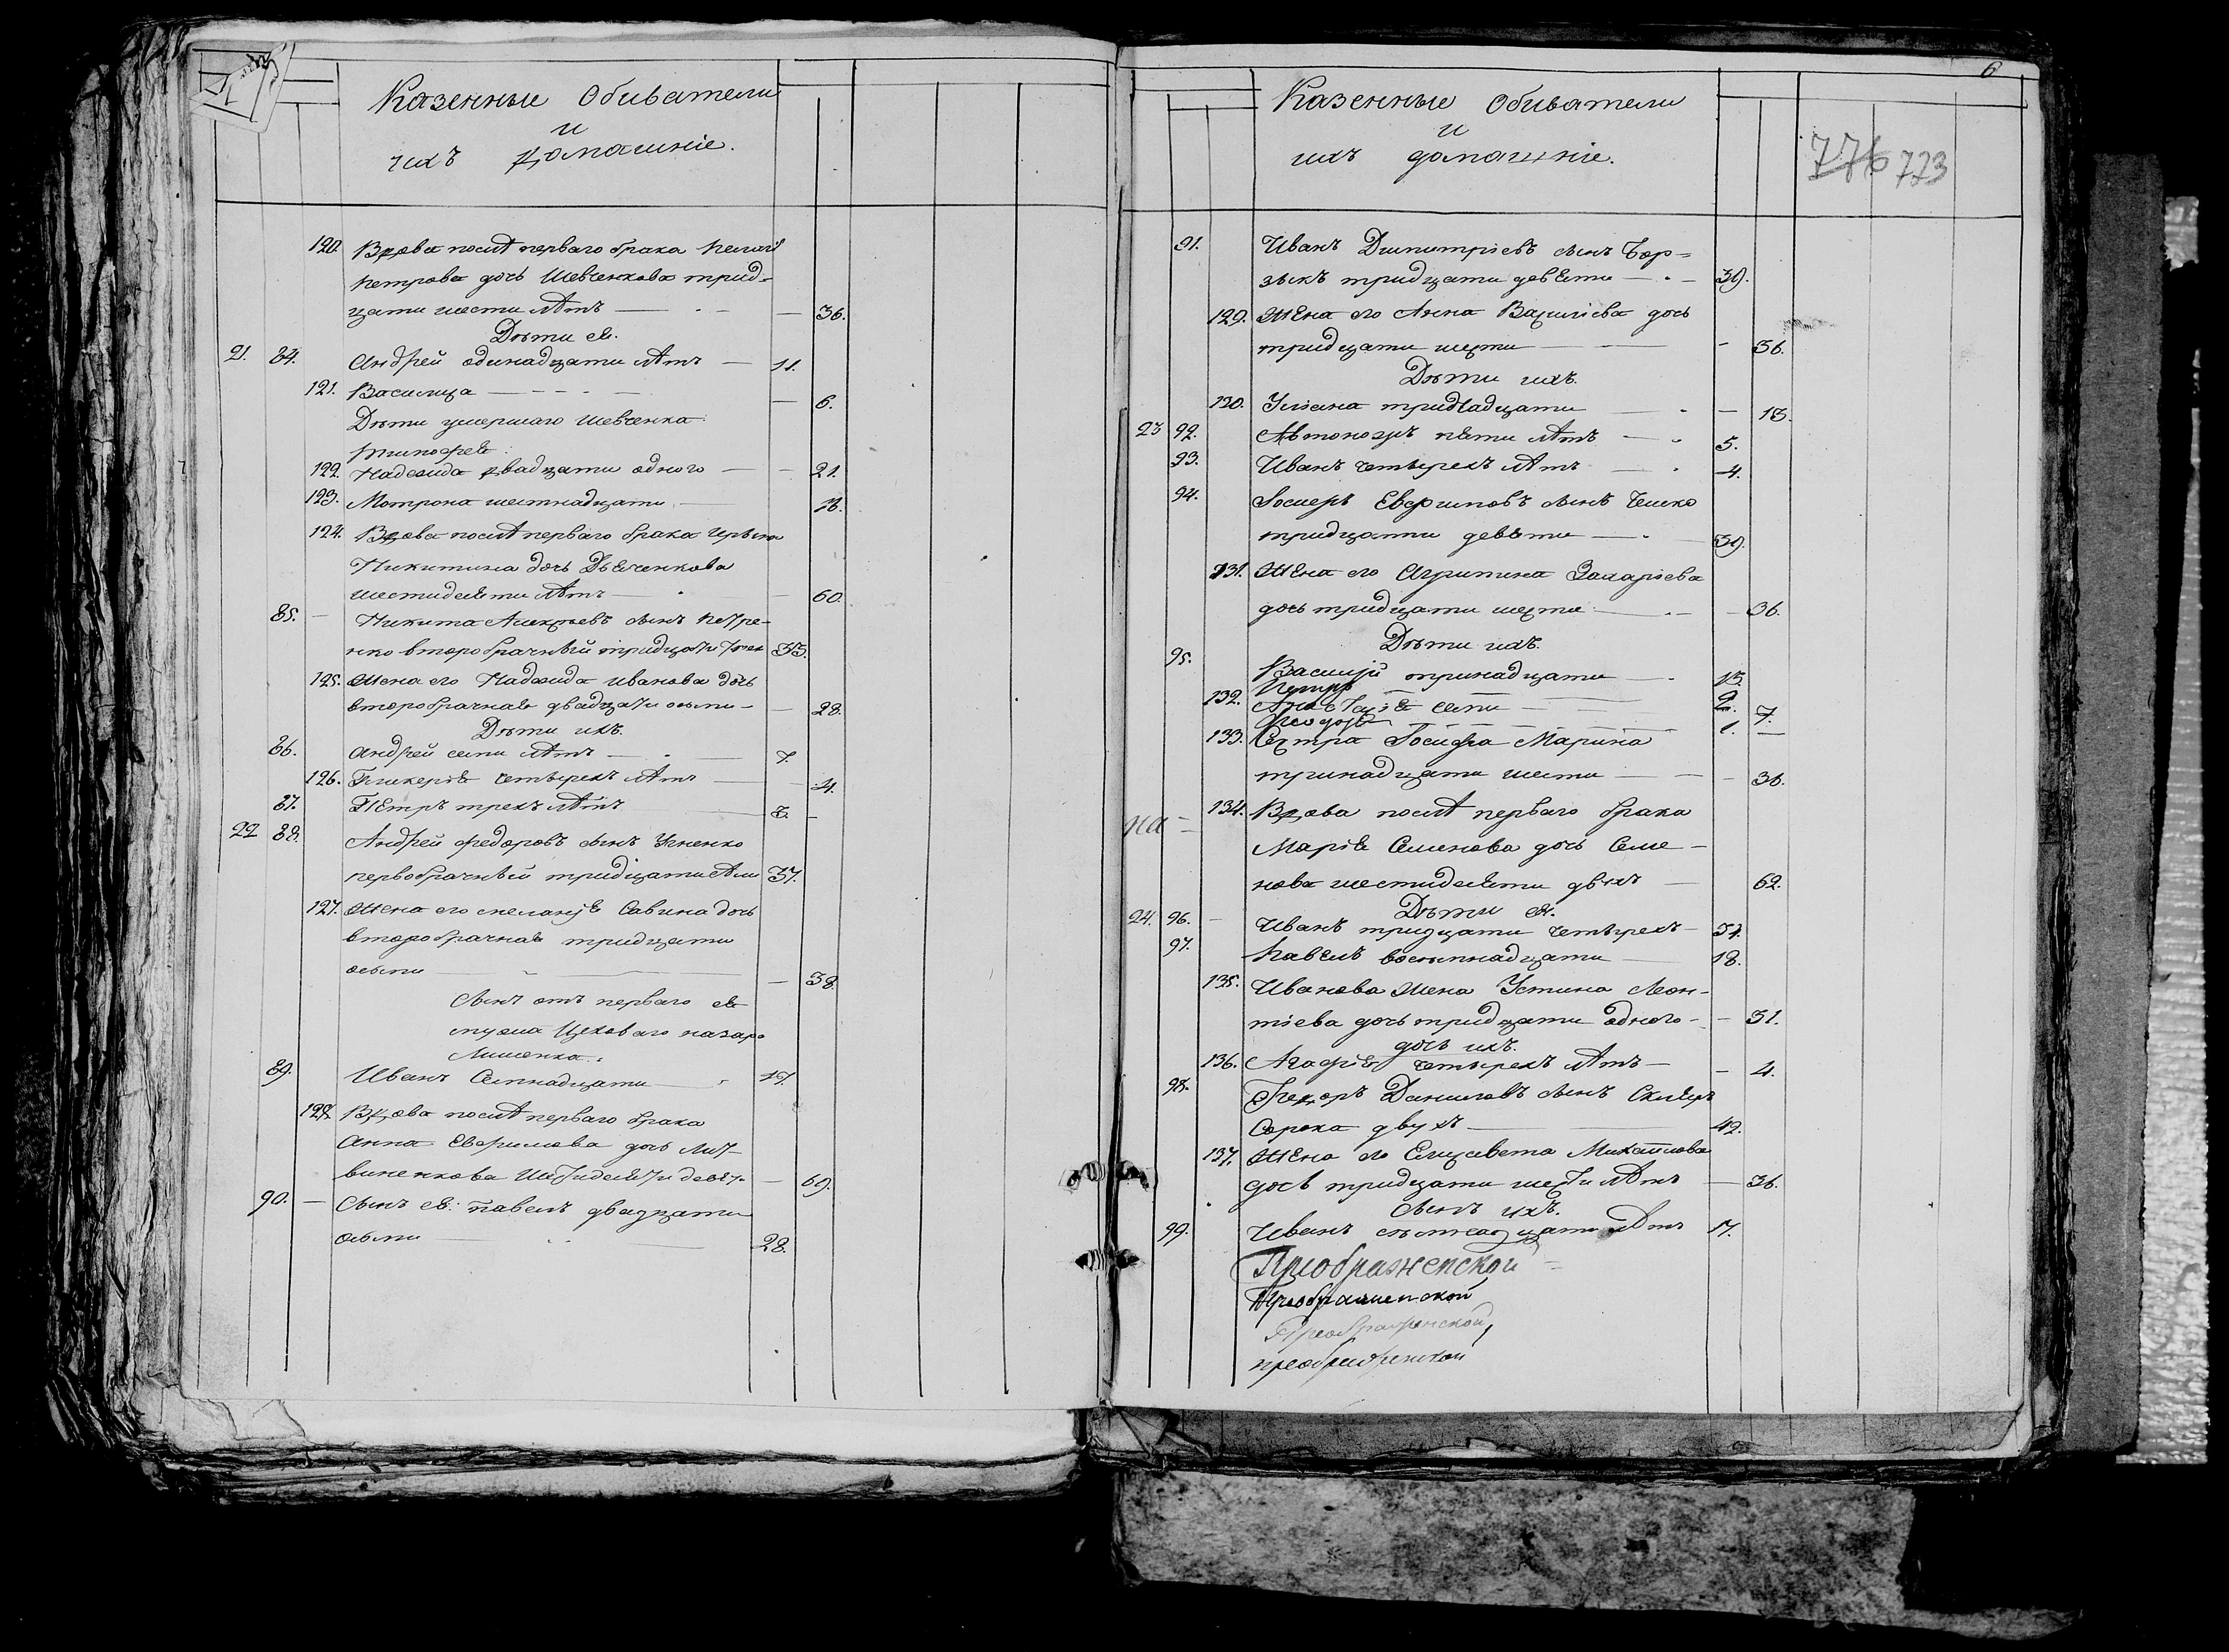 Казенныи Обиватели
и
ихъ домашніе.
120. Вдова послѣ перваго брака Пелагія
Петрова дочь Шевченкова трид-
цати шести лѣтъ — 36.
Дѣти ея.
21. 84. Андрей одинадцати лѣтъ — 11.
121. Василиса — 6.
Дѣти умершаго Шевченка
Тимофея:
122. Надежда двадцати одного — 21.
123. Мотрона шестнадцати — 16.
124. Вдова послѣ перваго брака
Никитина дочь Дьяченкова
шестидесяти лѣтъ — 60.
85. Никита Алексѣевъ сынъ Петре-
нко второбрачный тридцати 33.
125. Жена его Надежда Иванова дочь
второбрачная двадцати осьми — 28.
Дѣти ихъ.
86. Андрей семи лѣтъ — 7.
126. Гликерія четырехъ лѣтъ — 4.
87. Петръ трехъ лѣтъ — 3.
22 88. Андрей Федоровъ сынъ
первобрачный тридцати семи 37.
127. Жена его Меланія Савина дочь
второбрачная тридцати
осьми — 38.
Сынъ отъ перваго ея
мужа Цеховаго Назара
89. Иванъ Семнадцати — 17.
128. Вдова послѣ перваго брака
Анна Евфимова дочь Лит-
виненкова Шестидесяти девяти — 69.
90. — Сынъ ея: Павелъ двадцати
осьми — 28.
6
Казенные Обиватели
и
ихъ домашніе.
776 773
91. Иванъ Димитріевъ сынъ Бор-
зыкъ тридцати девяти — 39.
129. Жена его Анна Василіева дочь
тридцати шести — 36.
Дѣти ихъ.
130. Уліана тринадцати — 13.
23 92. Автономъ пяти лѣтъ — 5.
93. Иванъ четырехъ лѣтъ — 4.
94. Іосифъ Евфимовъ сынъ
тридцати девяти — 39.
131. Жена его Агрипина Захаріева
дочь тридцати шести — 36.
Дѣти ихъ.
95. Василій тринадцати — 13.
Петръ — 2.
132. Анастасія семи — 7.
Феодоръ — 1.
133. Сестра Іосифа Марина
тринадцати шести — 36.
на
134. Вдова послѣ перваго брака
Марія Семенова дочь Семе-
нова шестидесяти двухъ — 62.
Дѣти ея.
24. 96. Иванъ тридцати четырехъ — 34.
97. Павелъ восемнадцати — 18.
135. Иванова жена Устина Леон-
тіева дочь тридцати одного — 31.
дочь ихъ.
136. Агафія четырехъ лѣтъ — 4.
98. Федоръ Даниловъ сынъ Скляръ
Сорока двухъ — 42.
137. Жена его Елисавета Михайлова
дочь тридцати шести лѣтъ — 36.
Сынъ ихъ.
99. Иванъ семнадцати лѣтъ 17.
Преображенской
Преображенской
Преображенской
преображенской